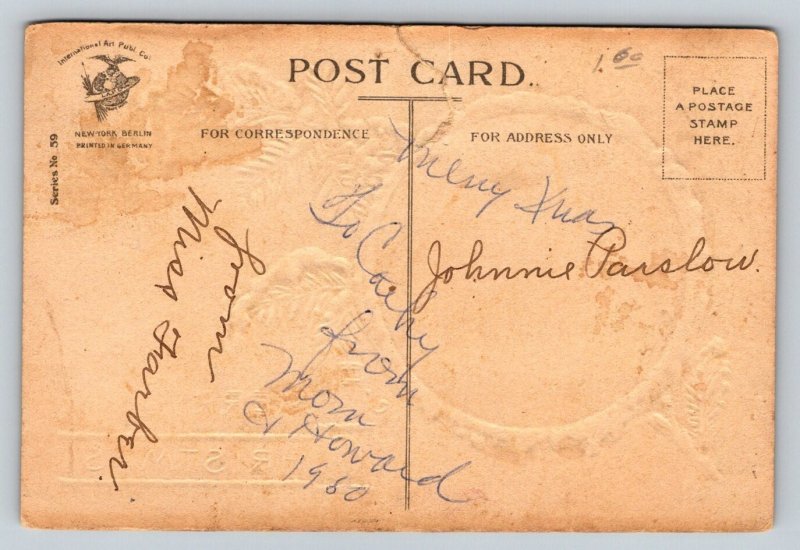 International Art Publ. Co.
NEW-YORK BERLIN
PRINTED IN GERMANY
Series No. 59
POST CARD.
1.60
PLACE
A POSTAGE
STAMP
HERE.
FOR CORRESPONDENCE
FOR ADDRESS ONLY
from
Miss Farber.
Merry Xmas
To Cathy
from
Mom
& Howard
1980
Johnnie Parslow.